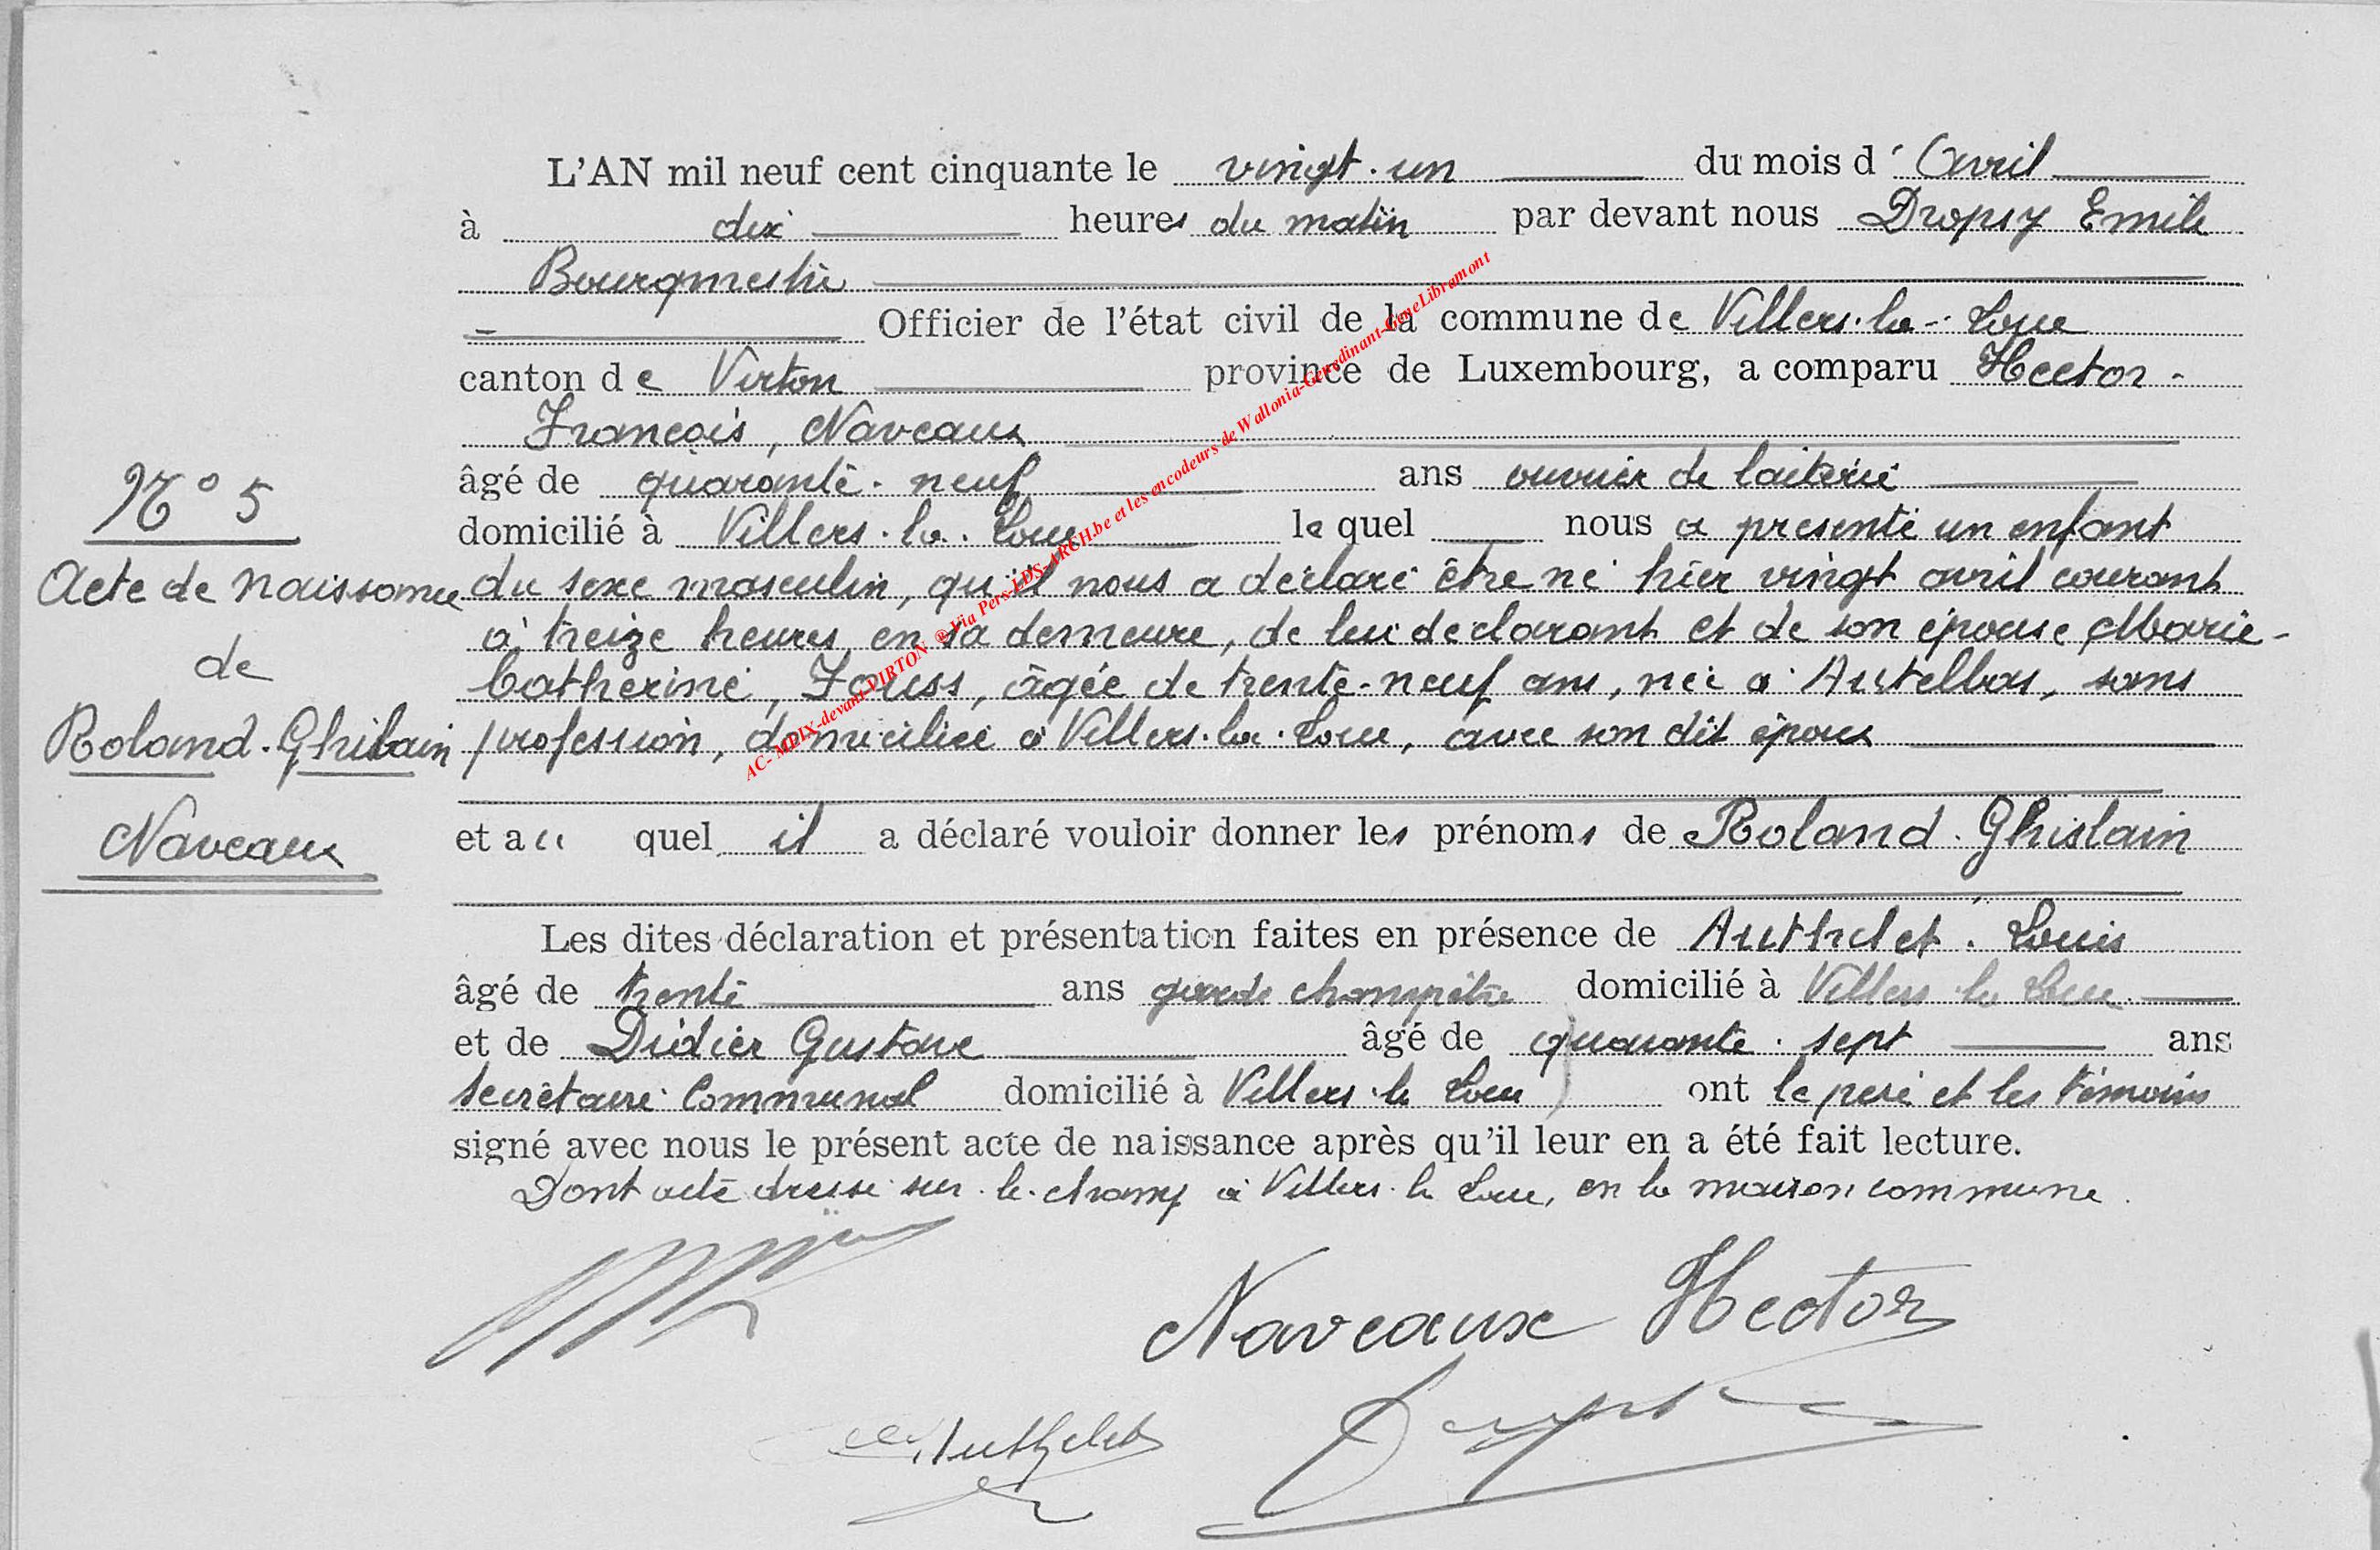 L'AN mil neuf cent cinquante le vingt-un du mois d'Avril
à dix heures du matin par devant nous Dropsy Emile
Bourgmestre
Officier de l'état civil de la commune de Villers-la-Loue
canton de Virton province de Luxembourg, a comparu Hector-
François, Naveaux
âgé de quarante-neuf ans ouvrier de laiterie
domicilié à Villers-la-Loue lequel nous a présenté un enfant
N° 5
Acte de Naissance
de
Roland-Ghislain
Naveaux
du sexe masculin, qu'il nous a déclaré être né hier vingt avril courant
à treize heures, en sa demeure, de lui déclarant et de son épouse, Marie-
Catherine, Jouss, âgée de trente-neuf ans, née à Autelbas, sans
profession, domiciliée à Villers-la-Loue, avec son dit époux
et auquel il a déclaré vouloir donner les prénoms de Roland-Ghislain
Les dites déclaration et présentation faites en présence de Authelet Louis
âgé de trente ans garde champêtre domicilié à Villers la Loue
et de Didier Gustave âgé de quarante-sept ans
secrétaire Communal domicilié à Villers-la Loue ont le père et les témoins
signé avec nous le présent acte de naissance après qu'il leur en a été fait lecture.
Dont acte dressé sur-le-champ à Villers-la Loue, en la maison commune.
Naveaux Hector
Authelet
Dropsy
AC- MEIX-devant-VIRTON ® Via Pers-LDS- ARCH.be et les encodeurs de Wallonia-Genedinant-GeneLibramont